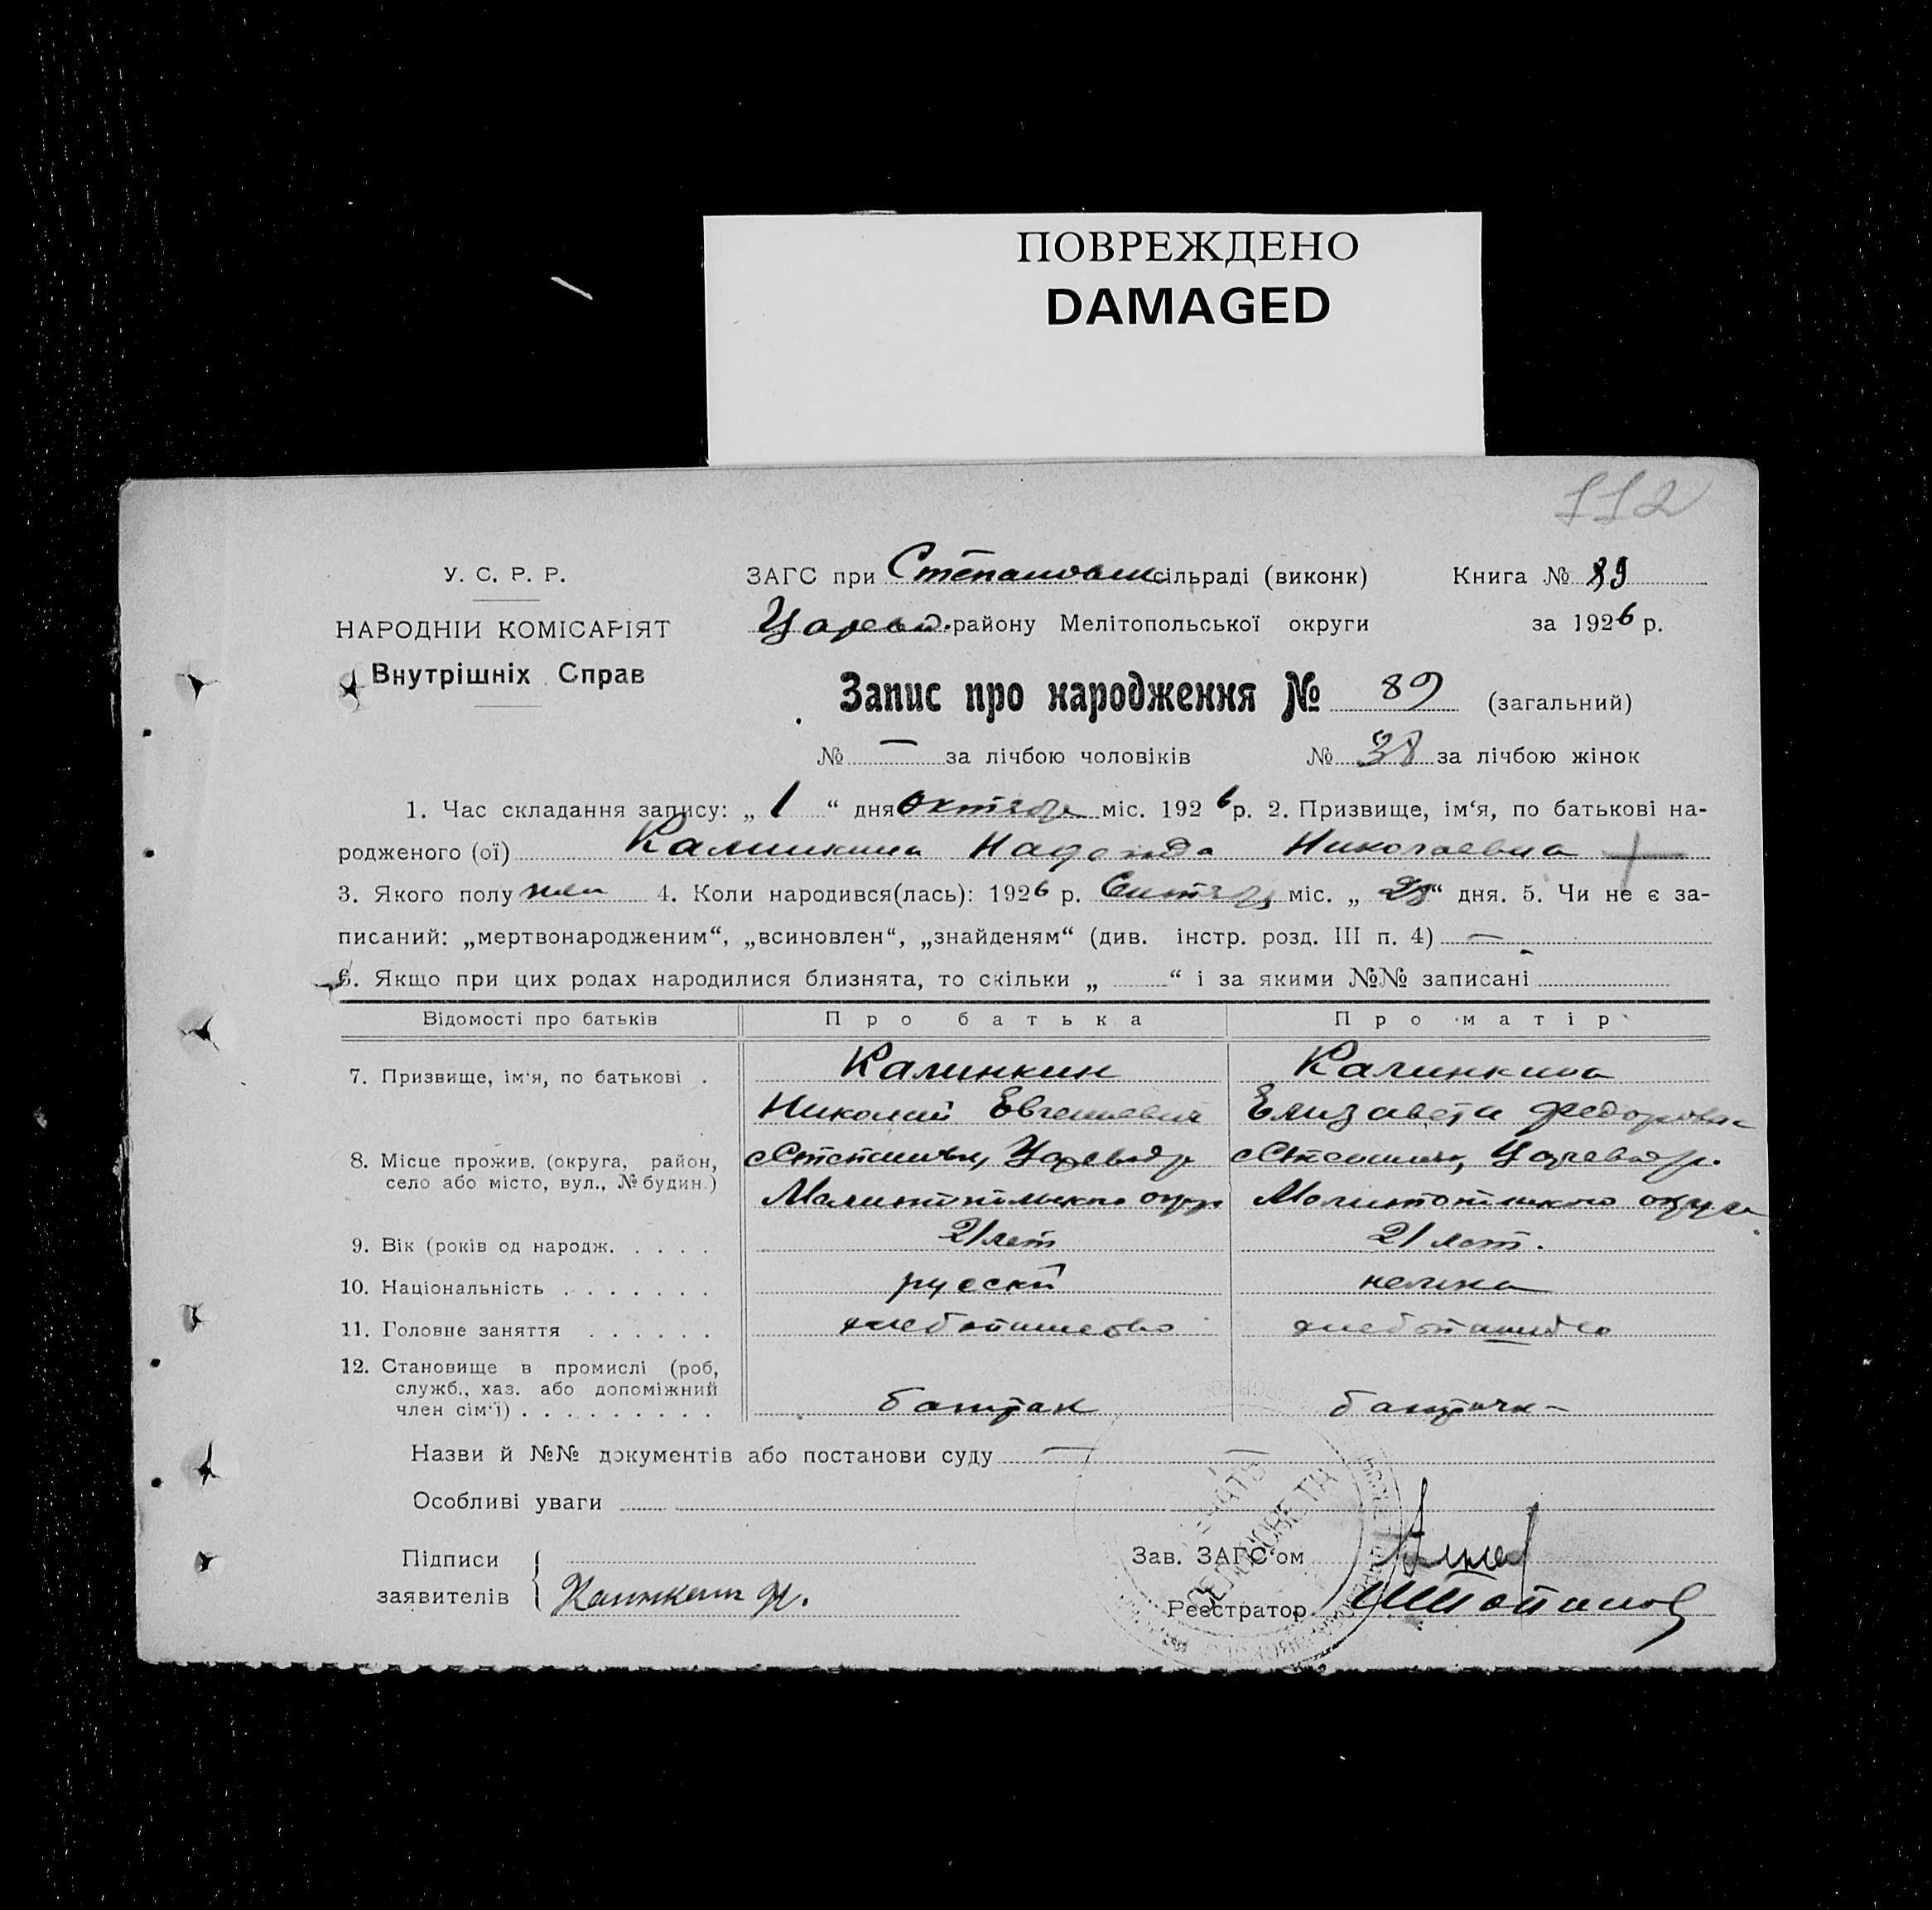 ПОВРЕЖДЕНО
DAMAGED
112
У. С. Р. Р.
ЗАГС при Степановск сільраді (виконк) Книга № 89
НАРОДНІЙ КОМІСАРІЯТ
Царевод. району Мелітопольської округи за 1926 р.
Внутрішніх Справ
Запис про народження № 89 (загальний)
№ — за лічбою чоловіків № 38 за лічбою жінок
1. Час складання запису: „ 1 “ дня Октября міс. 1926 р. 2. Призвище, ім‘я, по батькові на-
родженого (ої) Калинкина Надежда Николаевна
3. Якого полу жен 4. Коли народився(лась): 1926 р. Сентябр міс. „ 28 “ дня. 5. Чи не є за-
писаний: „мертвонародженим“, „всиновлен“, „знайденям“ (див. інстр. розд. III п. 4) —
6. Якщо при цих родах народилися близнята, то скільки „ “ і за якими №№ записані
Відомості про батьків Про батька Про матір
7. Призвище, ім‘я, по батькові . Калинкин Калинкина
Николай Евгениевич Елизавета Федоровна
8. Місце прожив. (округа, район, село або місто, вул., № будин.) с Степановк, Цареводр с Степановк, Цареводр.
Мелитопольского окр Мелитопольского округа
9. Вік (років од народж. . . . . 21 лет 21 лет.
10. Національність . . . . . . . руский немка
11. Головне заняття . . . . . . хлебопашество хлебопашество
12. Становище в промислі (роб,
служб., хаз. або допоміжний
член сім‘ї) . . . . . . . . . батрак батрачка
Назви й №№ документів або постанови суду — —
Особливі уваги
Підписи Зав. ЗАГС‘ом
заявителів Калинкин Н. Реєстратор